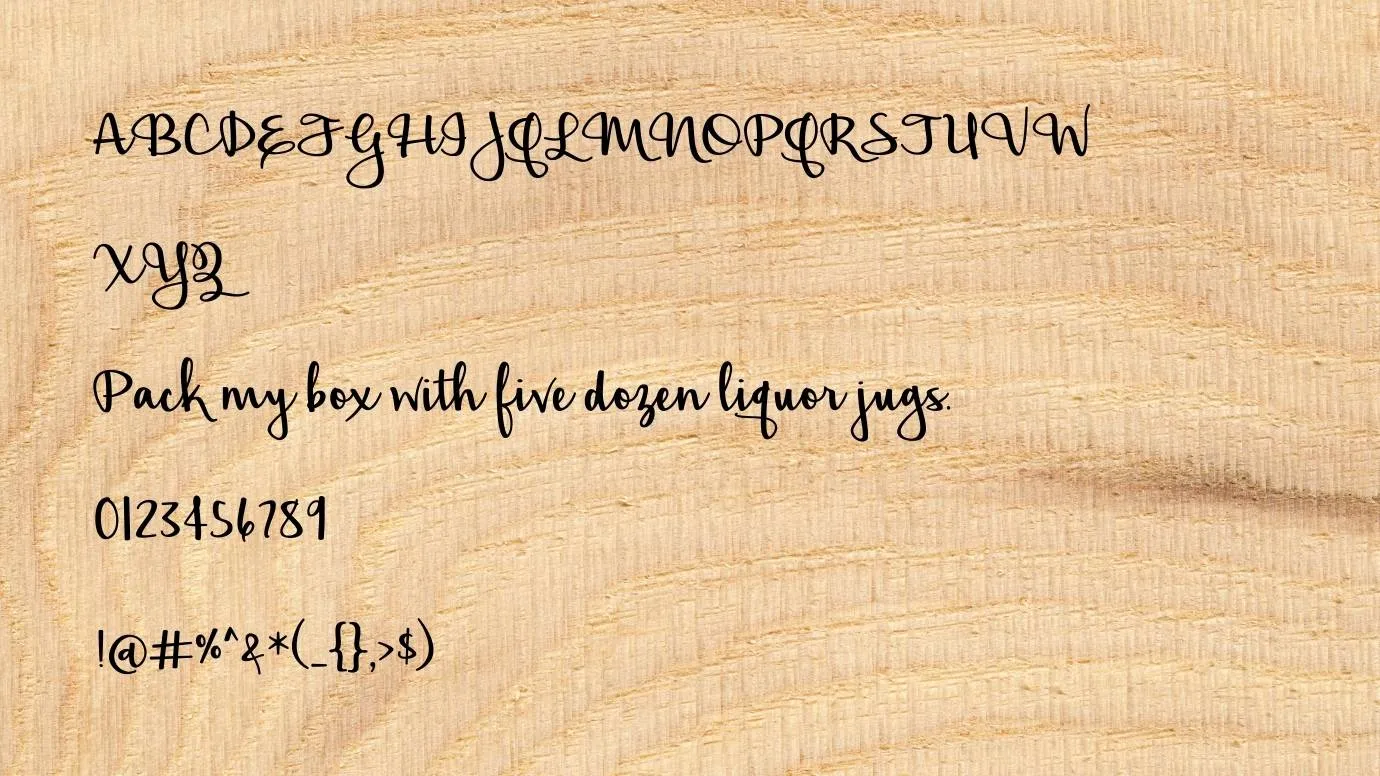 ABCDEFGHIJQLMNOPQRSTUVW
XYZ
Pack my box with five dozen liquor jugs.
0123456789
!@#%^&*(_{},>$)